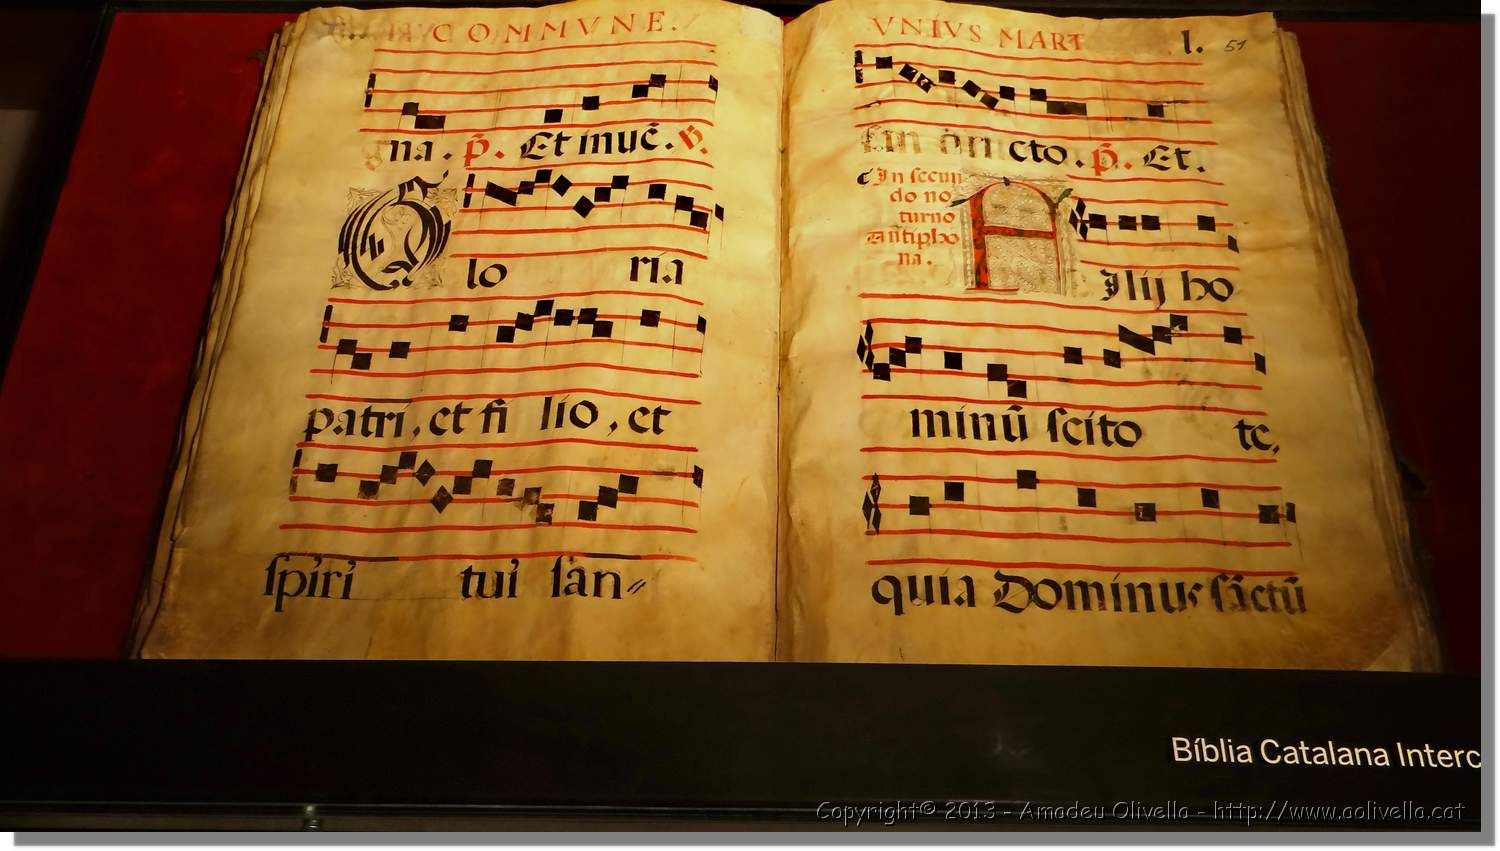 COMMVNE.
gna. p̃. Et inuc̃. v̄.
Gloria
patri, et filio, et
spiri tui san⸗
VNIVS MART l. 51
cto. p̃. Et.
In secun
do no
turno
Antipho
na.
Filij ho
minũ scito te,
quia Dominus sãctũ
Bíblia Catalana Interc
Copyright© 2013 - Amadeu Olivella - http://www.aolivella.cat